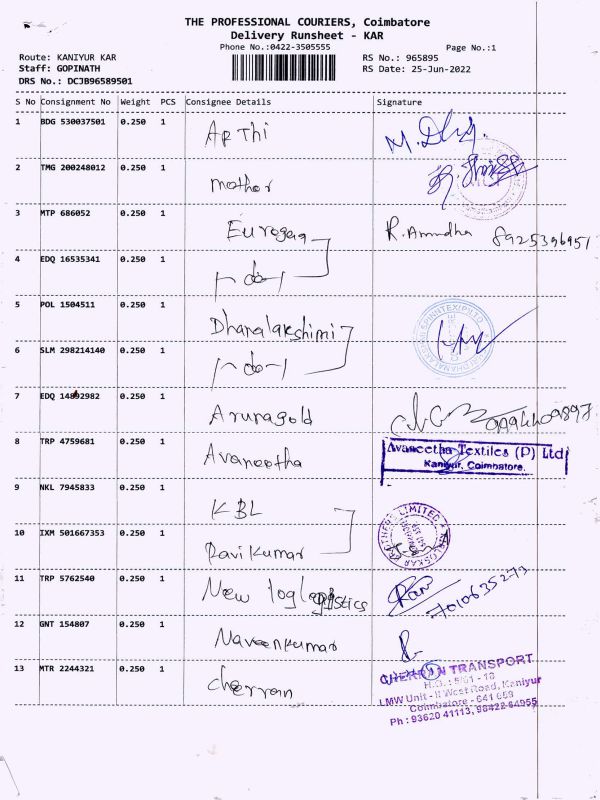 THE PROFESSIONAL COURIERS, Coimbatore
Delivery Runsheet - KAR
Phone No.:0422-3505555
Page No.:1
Route: KANIYUR KAR
RS No.: 965895
Staff: GOPINATH
RS Date: 25-Jun-2022
DRS No.: DCJB96589501
S No Consignment No Weight PCS Consignee Details Signature
1 BDG 530037501 0.250 1 Arthi M.
2 TMG 200248012 0.250 1 mother
3 MTP 686052 0.250 1 R. Anundha 8925396951
4 EDQ 16535341 0.250 1
5 POL 1504511 0.250 1 Dhanalakshimi
6 SLM 298214140 0.250 1
7 EDQ 14892982 0.250 1 Arunagold
8 TRP 4759681 0.250 1 Avaneetha
Avaneetha Textiles (P) Ltd
Kaniyur, Coimbatore.
9 NKL 7945833 0.250 1 KBL
10 IXM 501667353 0.250 1 Ravikumar
11 TRP 5762540 0.250 1 New 7010635273
12 GNT 154807 0.250 1 Naveenkumar
13 MTR 2244321 0.250 1 cherran
CHERRAN TRANSPORT
LMW Unit - II West Road, Kaniyur
Coimbatore - 641 659
Ph : 93620 41113, 98422 64955